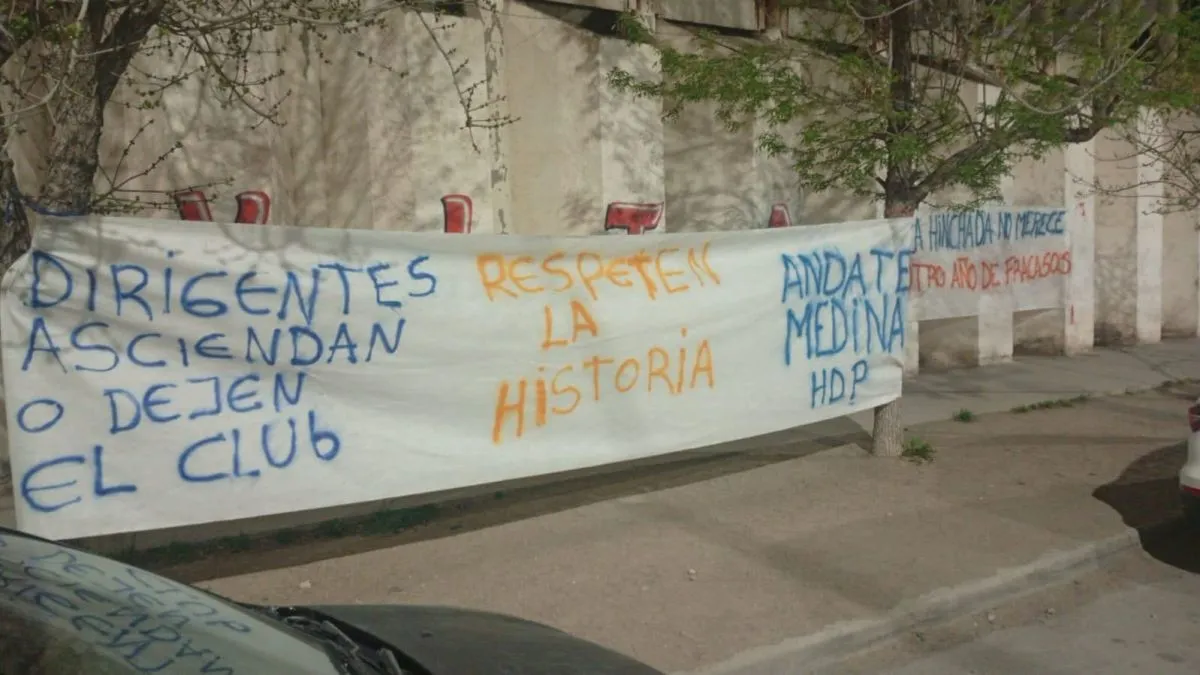 DIRIGENTES
ASCIENDAN
O DEJEN
EL CLUb
RESPETEN
LA
HISTORIA
ANDATE
MEDINA
HDP
A HINCHADA NO MERECE
TRO AÑO DE FRACASOS